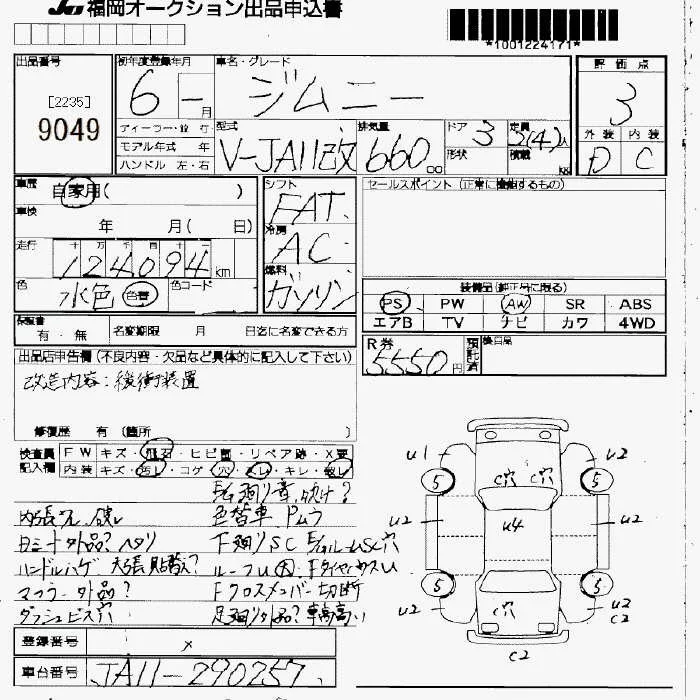 JU 福岡オークション出品申込書
*1001224171*
出品番号
[2235]
9049
初年度登録年月
6 一 月
車名・グレード
ジムニー
評価点
3
外装 内装
D C
ディーラー・並 行
モデル年式 年
ハンドル 左・右
型式
V-JA11改
排気量
660 cc
ドア 3
形状
定員
3(4)人
積載 kg
車歴
自家用( )
車検
年 月( 日)
走行
十 万 千 百 十 一
124094 km
色
水色 色替
色コード
シフト
FAT
冷房
AC
燃料
ガソリン
セールスポイント(正常に機能するもの)
装備品(純正品に限る)
PS PW AW SR ABS
エアB TV ナビ カワ 4WD
保証書
有・無
名変期限 月 日迄に名変できる方
R券
5550 円
預託済
後日品
出品店申告欄(不良内容・欠品など具体的に記入して下さい)
改造内容:緩衝装置
修復歴 有(箇所 )
検査員記入欄
FW キズ・飛石・ヒビ割・リペア跡・X要
内装 キズ・汚れ・コゲ・穴・スレ・キレ・破レ
色替車
シート外品?ヘタリ
下廻りSC
ハンドルハゲ 天張貼替え?
マフラー外品?
Fクロスメンバー切断
ダッシュビス穴
足廻り外品?車高高い
u1 u2
5 5
C穴 C穴
u2 u4 u2
5 5
u2 C穴 u2
C2
C2
登録番号
x
車台番号
JA11-290257